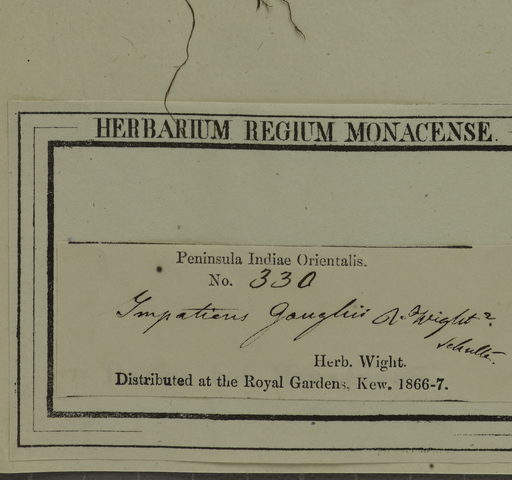 HERBARIUM REGIUM MONACENSE.
Peninsula Indiae Orientalis.
No. 330
Impatiens Goughii R. Wight
Herb. Wight.
Distributed at the Royal Gardens, Kew. 1866-7.